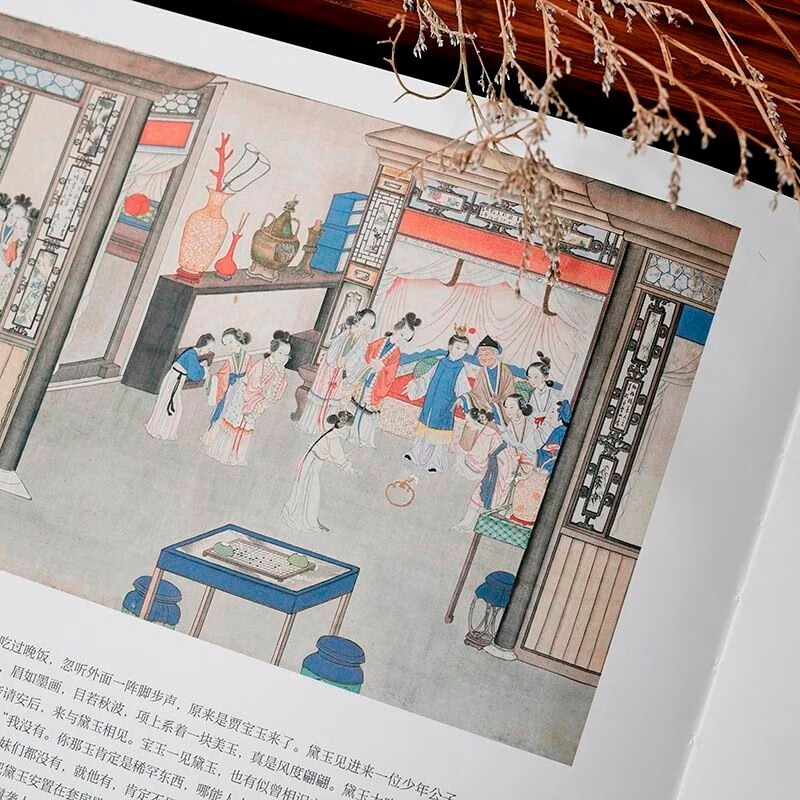 吃过晚饭，忽听外面一阵脚步声，原来是贾宝玉来了。黛玉见进来一位少年公子
，眉如墨画，目若秋波，项上系着一块美玉，真是风度翩翩。黛玉大
请安后，来与黛玉相见。宝玉一见黛玉，也有似曾相识
“我没有。你那玉肯定是稀罕东西，哪能人
妹们都没有，就他有，肯定不
把黛玉安置在套房